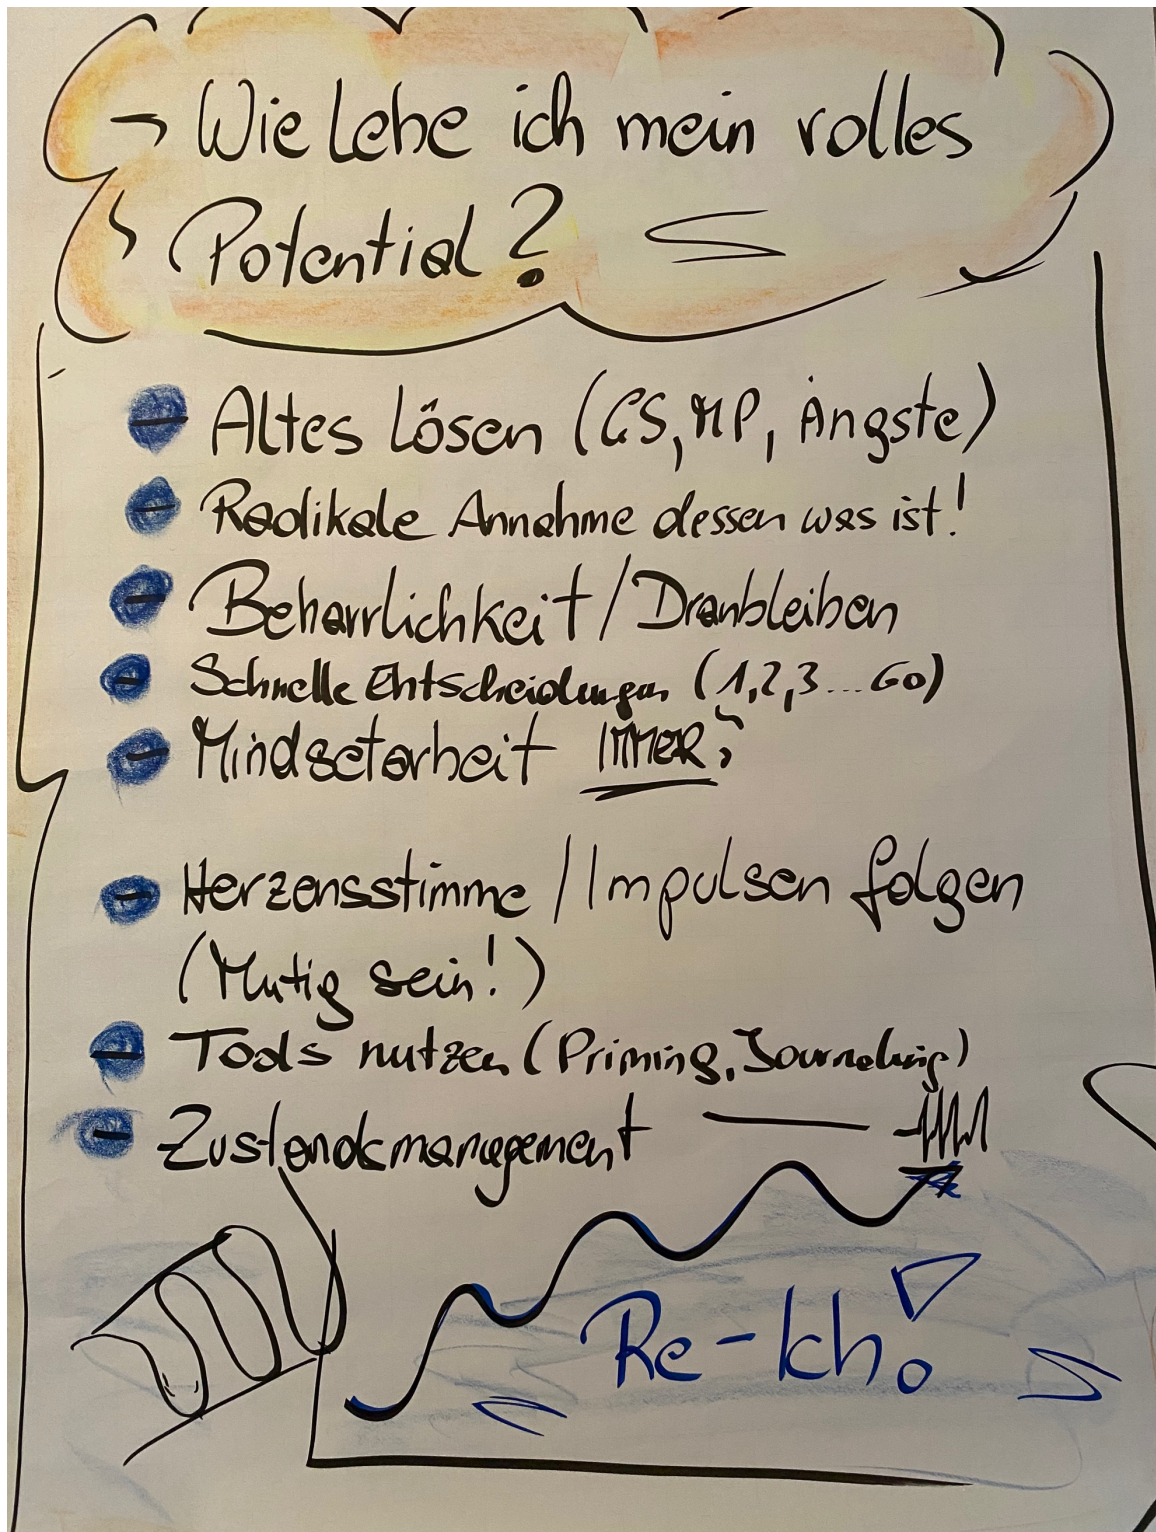 Wie lebe ich mein volles
Potential?
Altes lösen (GS, MP, Ängste)
Radikale Annahme dessen was ist!
Beharrlichkeit/Dranbleiben
Schnelle Entscheidungen (1,2,3... Go)
Mindsetarbeit IMMER
Herzensstimme / Impulsen folgen
(Mutig sein!)
Tools nutzen (Priming, Journaling)
Zustandsmanagement
Re-Ich!